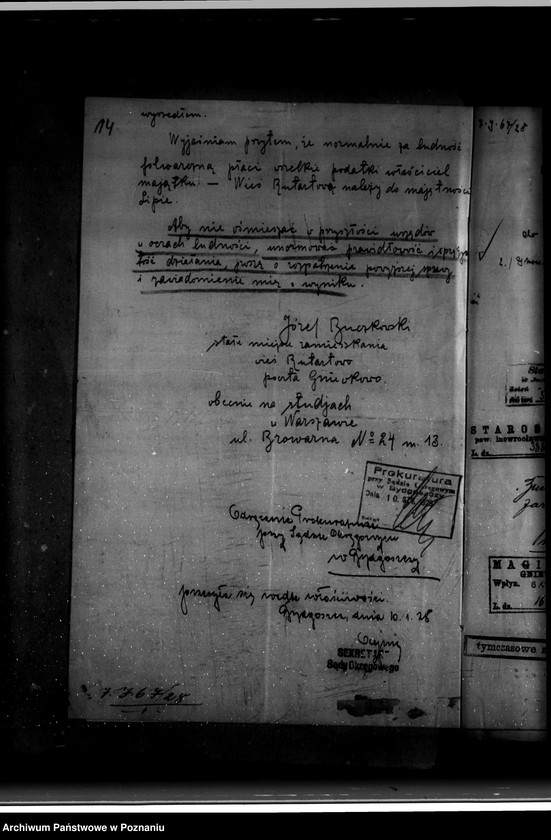 14
wyszedłem.
Wyjaśniam przytem, że normalnie za ludność
folwarczną płaci wszelkie podatki właściciel
majątku. — Wieś Butartowo należy do majętności
Lipie.
Aby nie ośmieszać w przyszłości urzędów
w oczach ludności, unormować prawidłowość i
działania, proszę o rozpatrzenie powyższej sprawy
i zawiadomienie mię o wyniku.
Józef
stałe miejsce zamieszkania
wieś Butartowo
poczta Gniewkowo.
obecnie na studjach
w Warszawie
ul. Browarna № 24 m. 13.
Prokuratura
przy Sądzie Okręgowym
w Bydgoszczy
Dnia 10
Prokuratury
przy Sądzie Okręgowym
w Bydgoszczy
przesyła się wedle właściwości.
Bydgoszcz, dnia 10.1.28
SEKRETARZ
Sądu Okręgowego
7 J 67/28
7 J 67/28
do
2./
STAROS
pow. inowrocław
L. dz.
MAGI
GNIE
Wpłyn.
L. dz. 16
tymczasowe
Archiwum Państwowe w Poznaniu